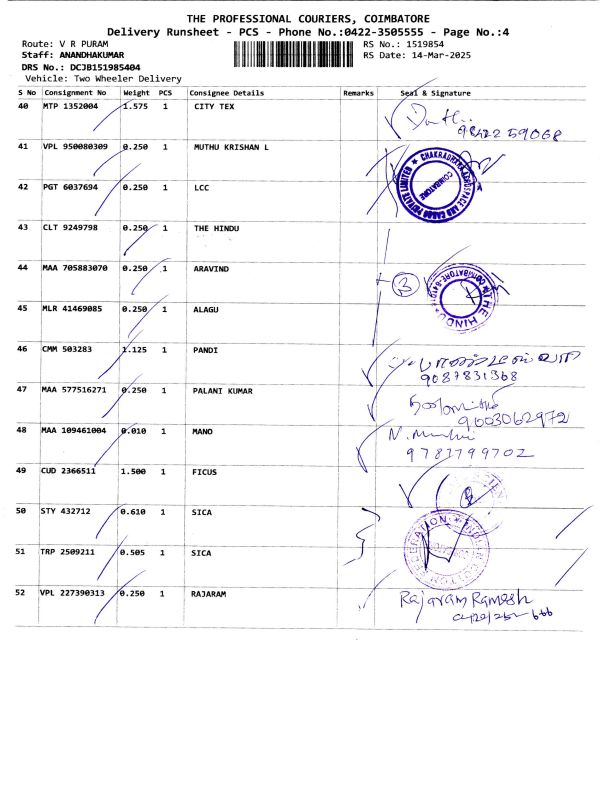 THE PROFESSIONAL COURIERS, COIMBATORE
Delivery Runsheet - PCS - Phone No.:0422-3505555 - Page No.:4
Route: V R PURAM RS No.: 1519854
Staff: ANANDHAKUMAR RS Date: 14-Mar-2025
DRS No.: DCJB151985404
Vehicle: Two Wheeler Delivery
S No Consignment No Weight PCS Consignee Details Remarks Seal & Signature
40 MTP 1352004 1.575 1 CITY TEX
98422 59068
41 VPL 950080309 0.250 1 MUTHU KRISHAN L
42 PGT 6037694 0.250 1 LCC
COIMBATORE
43 CLT 9249798 0.250 1 THE HINDU
44 MAA 705883070 0.250 1 ARAVIND
3
THE HINDU
45 MLR 41469085 0.250 1 ALAGU
46 CMM 503283 1.125 1 PANDI
9087831368
47 MAA 577516271 0.250 1 PALANI KUMAR
9003062972
48 MAA 109461004 0.010 1 MANO
9781799702
49 CUD 2366511 1.500 1 FICUS
50 STY 432712 0.610 1 SICA
51 TRP 2509211 0.505 1 SICA
52 VPL 227390313 0.250 1 RAJARAM
Rajaram Ramesh